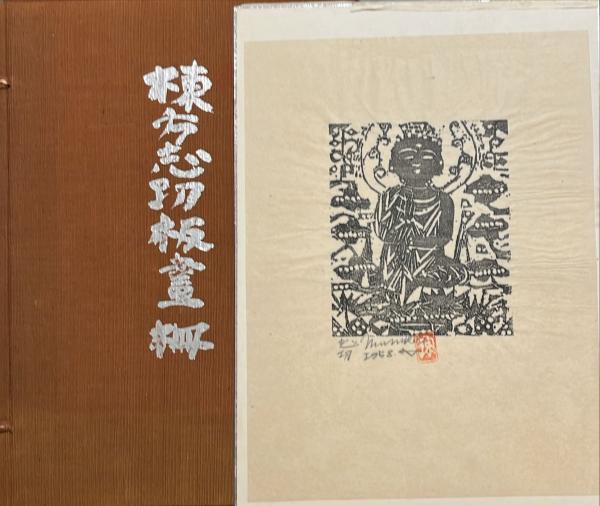 棟方志功板畫柵
志功 Munakata
1958.